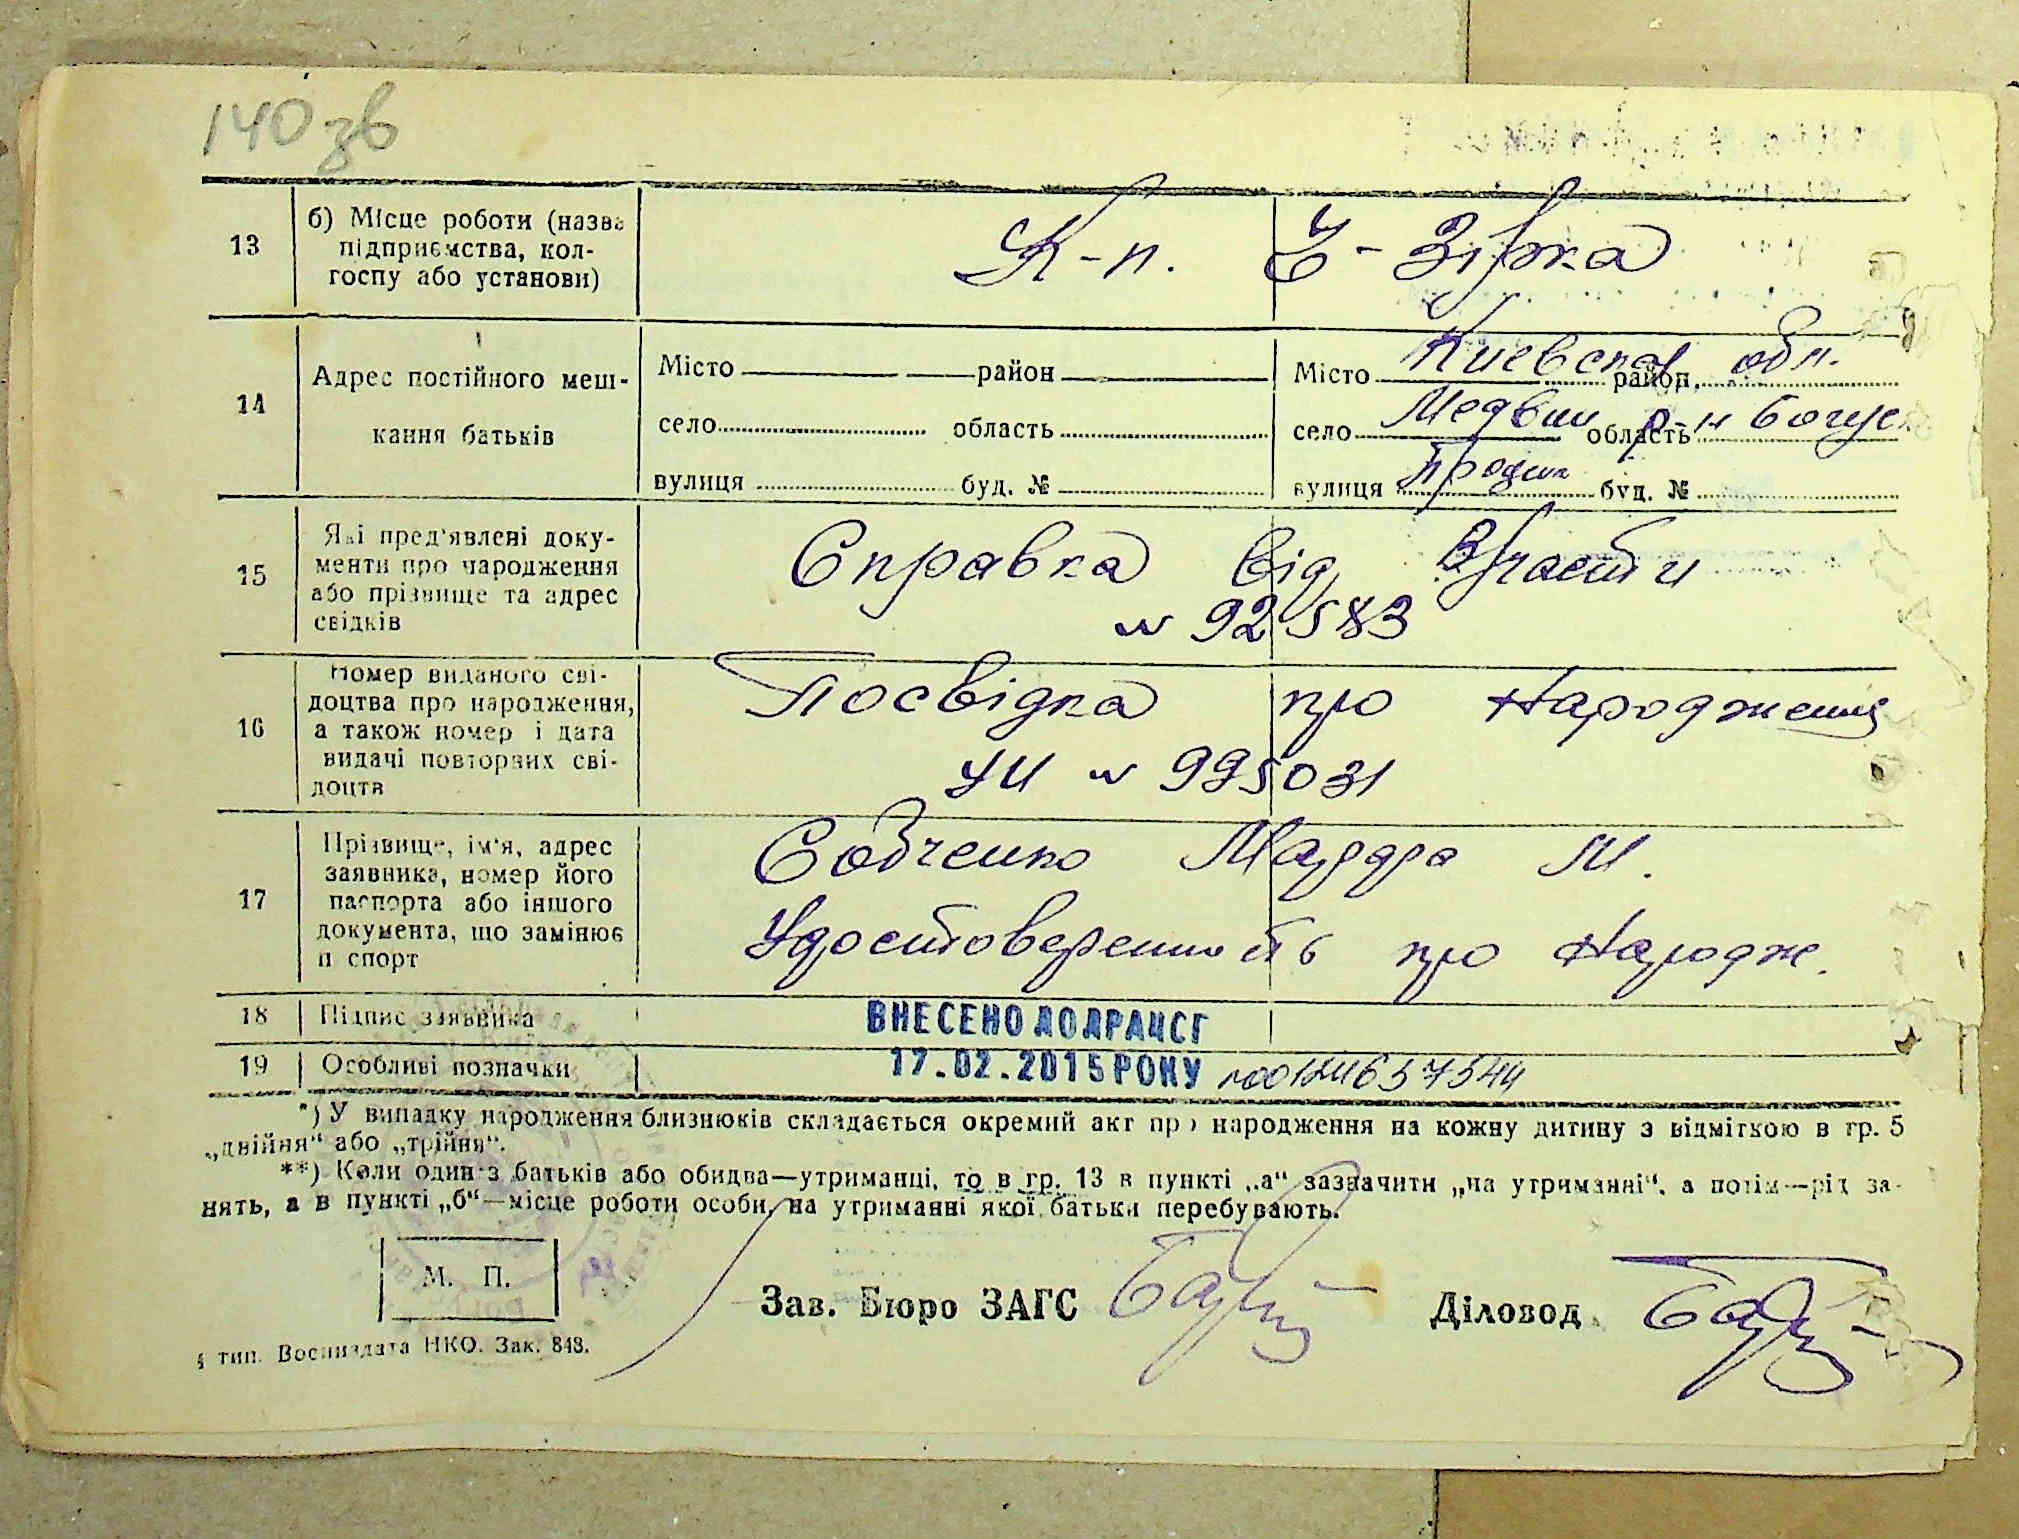 140 зв
13
б) Місце роботи (назва
підприємства, кол-
госпу або установи)
К-п. Ч-Зірка
14
Адрес постійного меш-
кання батьків
Місто район
село область
вулиця буд. №
Місто Киевская район обл.
село Медвин область р-н Богусл
вулиця буд. №
15
Які пред'явлені доку-
менти про народження
або прізвище та адрес
свідків
Справка від
№ 92583
16
Номер виданого сві-
доцтва про народження,
а також номер і дата
видачі повторних сві-
доцтв
Посвідка про Народження
УИ № 995031
17
Прізвище, ім'я, адрес
заявника, номер його
паспорта або іншого
документа, що замінює
п спорт
Собченко М.
Удостоверенность про Народж.
18
Підпис заявника
ВНЕСЕНО ДО ДРАЦСГ
19
Особливі позначки
17.02.2015 РОКУ
*) У випадку народження близнюків складається окремий акт про народження на кожну дитину з відміткою в гр. 5
„двійня“ або „трійня“.
**) Коли один з батьків або обидва—утриманці, то в гр. 13 в пункті „а“ зазначити „на утриманні“, а потім—рід за-
нять, а в пункті „б“—місце роботи особи, на утриманні якої батьки перебувають.
М. П.
Зав. Бюро ЗАГС
Діловод
тип. Воениздата НКО. Зак. 848.